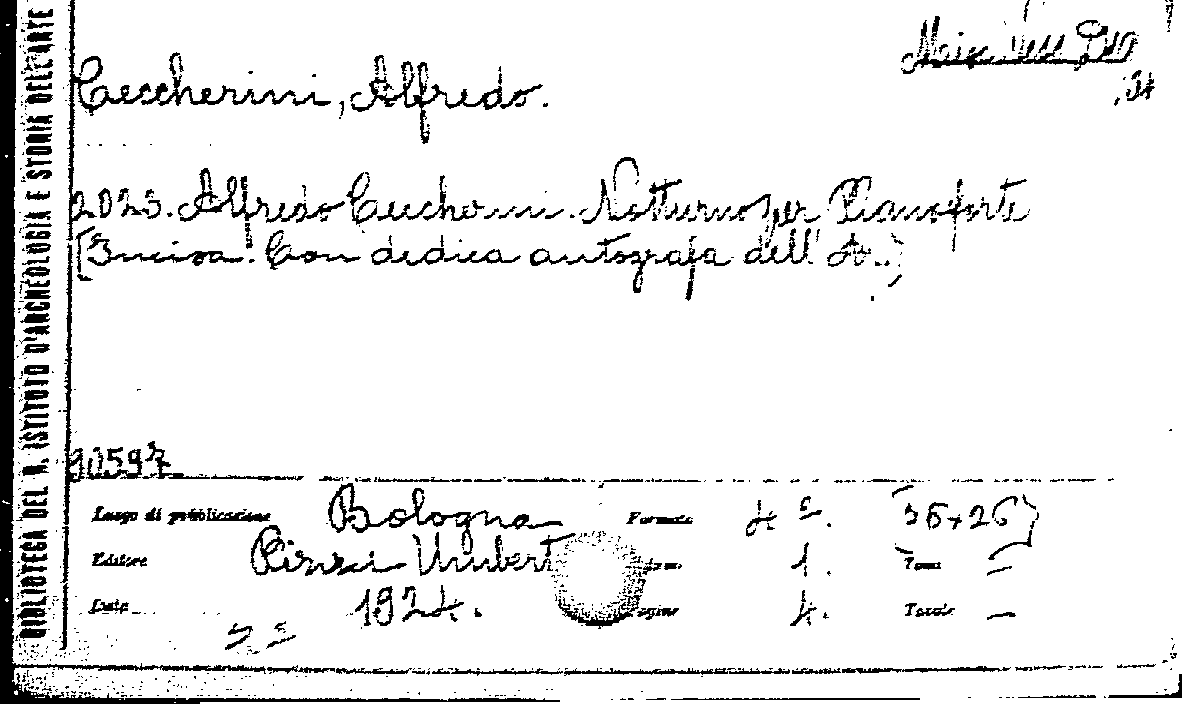 BIBLIOTECA DEL R. ISTITUTO D'ARCHEOLOGIA E STORIA DELL'ARTE
Ceccherini, Alfredo.
2023. Alfredo Ceccherini. Notturno per Pianoforte
[Incisa. Con dedica autografa dell'A.]
90597
Luogo di pubblicazione Bologna Formato 4º. [36×26]
Editore Pizzi Umberto 1. Tomi —
Data 1924. Pagine 4. Tavole —